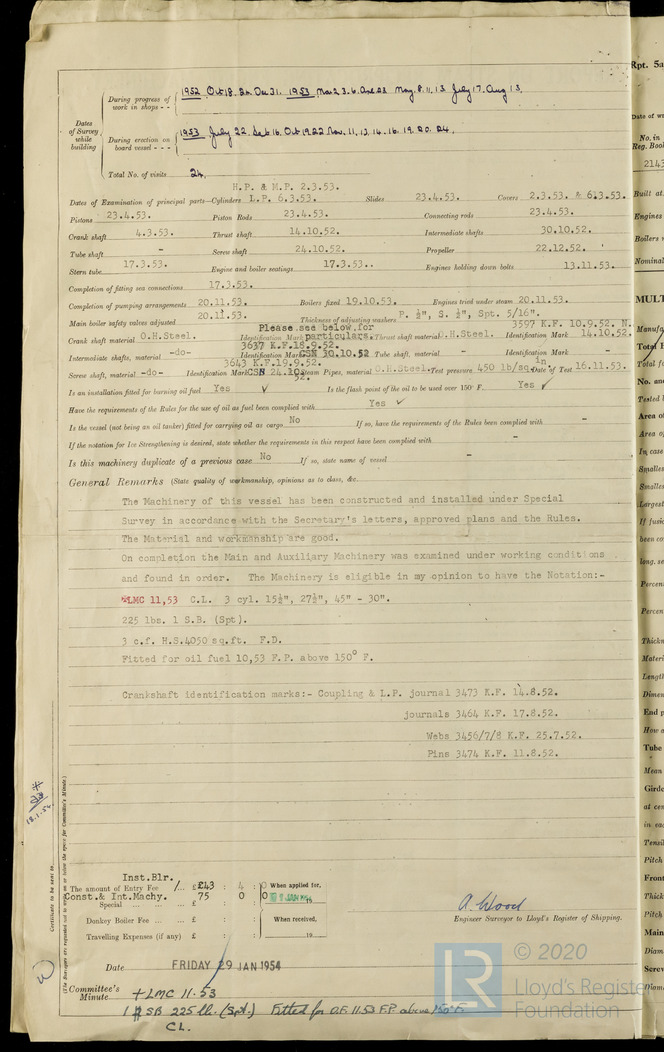 Dates of Survey while building
During progress of work in shops - - 1952 Oct 18. 24 Dec 31. 1953 Mar 2 3. 6. Apl 23 May 8. 11. 13 July 17. Aug 13.
During erection on board vessel - - - 1953 July 22. Sept 16. Oct 19 22 Nov. 11, 13. 14. 16. 19. 20. 24.
Total No. of visits 24
H.P. & M.P. 2.3.53.
Dates of Examination of principal parts—Cylinders L.P. 6.3.53. Slides 23.4.53. Covers 2.3.53. & 6.3.53.
Pistons 23.4.53. Piston Rods 23.4.53. Connecting rods 23.4.53.
Crank shaft 4.3.53. Thrust shaft 14.10.52. Intermediate shafts 30.10.52.
Tube shaft - Screw shaft 24.10.52. Propeller 22.12.52.
Stern tube 17.3.53. Engine and boiler seatings 17.3.53.. Engines holding down bolts 13.11.53.
Completion of fitting sea connections 17.3.53.
Completion of pumping arrangements 20.11.53. Boilers fixed 19.10.53. Engines tried under steam 20.11.53.
Main boiler safety valves adjusted 20.11.53. Thickness of adjusting washers P. ½", S. ½", Spt. 5/16".
Please see below for 3597 K.F. 10.9.52. N.
Crank shaft material O.H.Steel. Identification Mark particulars. Thrust shaft material O.H.Steel. Identification Mark 14.10.52.
3637 K.F.18.9.52.
Intermediate shafts, material -do- Identification Marks GSN 30.10.52 Tube shaft, material - Identification Mark -
3643 K.F.19.9.52.
Screw shaft, material -do- Identification Mark GSN 24.10.52. Steam Pipes, material O.H.Steel. Test pressure 450 lb/sq.in Date of Test 16.11.53.
Is an installation fitted for burning oil fuel Yes ✓ Is the flash point of the oil to be used over 150° F. Yes ✓
Have the requirements of the Rules for the use of oil as fuel been complied with Yes ✓
Is the vessel (not being an oil tanker) fitted for carrying oil as cargo No If so, have the requirements of the Rules been complied with -
If the notation for Ice Strengthening is desired, state whether the requirements in this respect have been complied with -
Is this machinery duplicate of a previous case No If so, state name of vessel -
General Remarks (State quality of workmanship, opinions as to class, &c.
The Machinery of this vessel has been constructed and installed under Special
Survey in accordance with the Secretary's letters, approved plans and the Rules.
The Material and workmanship are good.
On completion the Main and Auxiliary Machinery was examined under working conditions
and found in order. The Machinery is eligible in my opinion to have the Notation:-
*LMC 11,53 C.L. 3 cyl. 15½", 27½", 45" - 30".
225 lbs. 1 S.B. (Spt).
3 c.f. H.S.4050 sq.ft. F.D.
Fitted for oil fuel 10,53 F.P. above 150° F.
Crankshaft identification marks:- Coupling & L.P. journal 3473 K.F. 14.8.52.
journals 3464 K.F. 17.8.52.
Webs 3456/7/8 K.F. 25.7.52.
Pins 3474 K.F. 11.8.52.
Certificate to be sent to
(The Surveyors are requested not to write on or below the space for Committee's Minute.)
Inst.Blr.
The amount of Entry Fee £43 : 4 : 0 When applied for,
Const.& Int.Machy. 75 0 0
Special ... £ : : 19
Donkey Boiler Fee ... £ : : When received,
Travelling Expenses (if any) £ : : 19
A. Wood
Engineer Surveyor to Lloyd's Register of Shipping.
Date FRIDAY 29 JAN 1954
Committee's Minute +LMC 11.53
1 SB 225 lb. (Spt.) Fitted for O.F. 11.53 F.P. above 150°F.
CL.
LR
© 2020
Lloyd's Register
Foundation
Rpt. 5a
No. in
Reg. Book
2143
Built at
Engines
Boilers
Nominal
MULT
Total